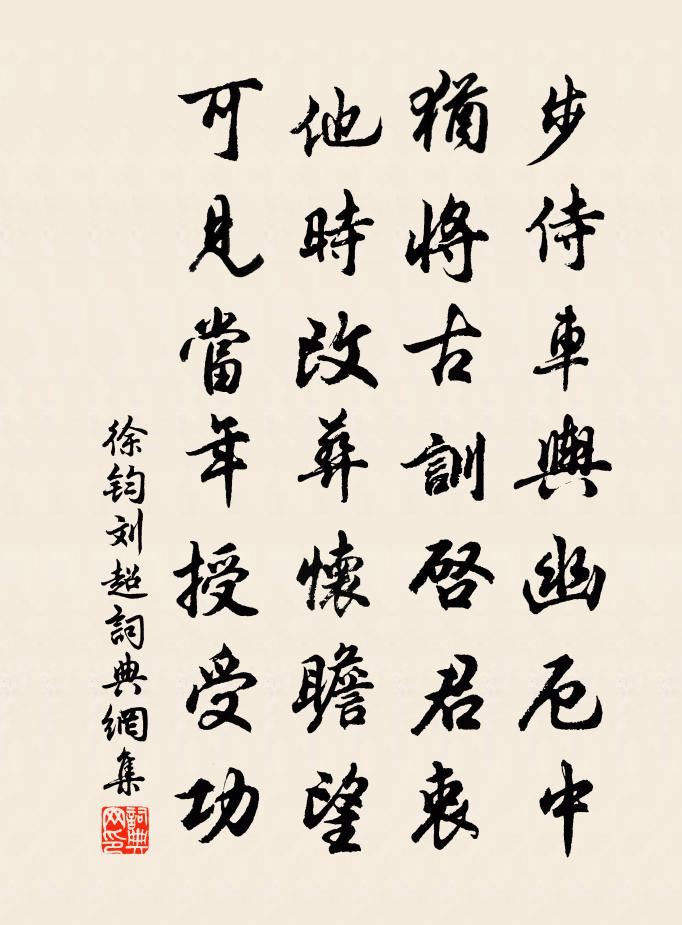 步侍車輿幽厄中
猶將古訓啓君衷
他時改葬懷瞻望
可見當年授受功
徐鈞刘超詞典網集
詞典网印